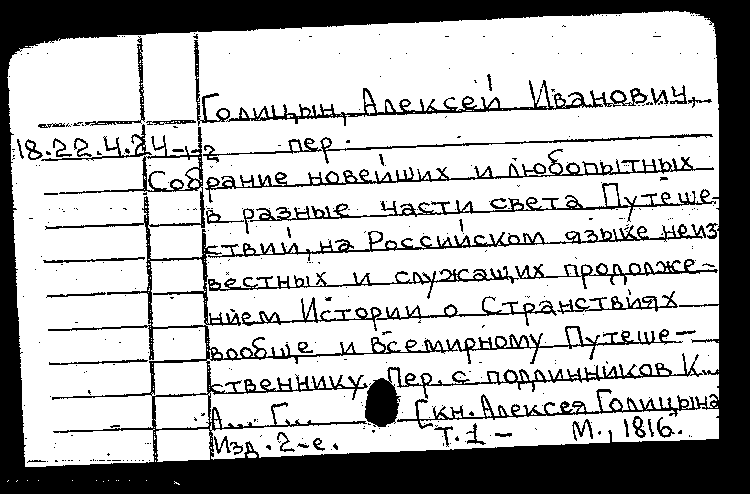 Голицын, Алексей Иванович,
18.22.4.24-1-2 пер.
Собрание новейших и любопытных
в разные части света Путеше-
ствий, на Российском языке неиз
вестных и служащих продолже-
нием Истории о Странствиях
вообще и Всемирному Путеше-
ственнику. Пер. с подлинников К...
А... Г... [кн. Алексея Голицына
Изд. 2-е. Т.1 - М., 1816.